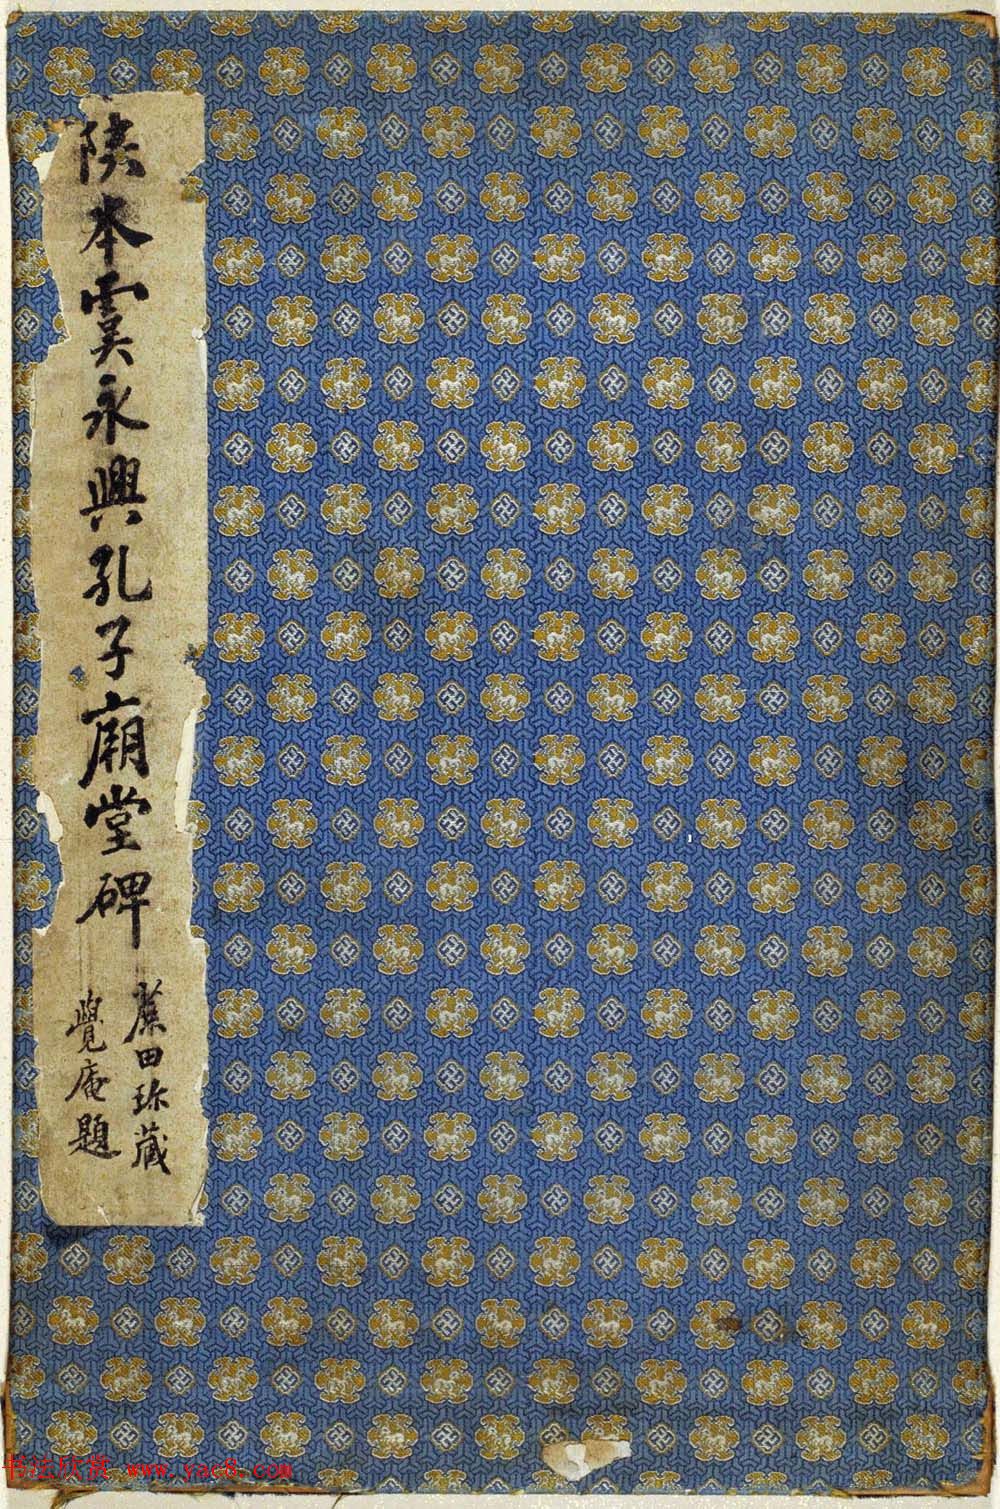 陝本虞永興孔子廟堂碑
蔗田珎藏
覺庵題
书法欣赏 www.yac8.com